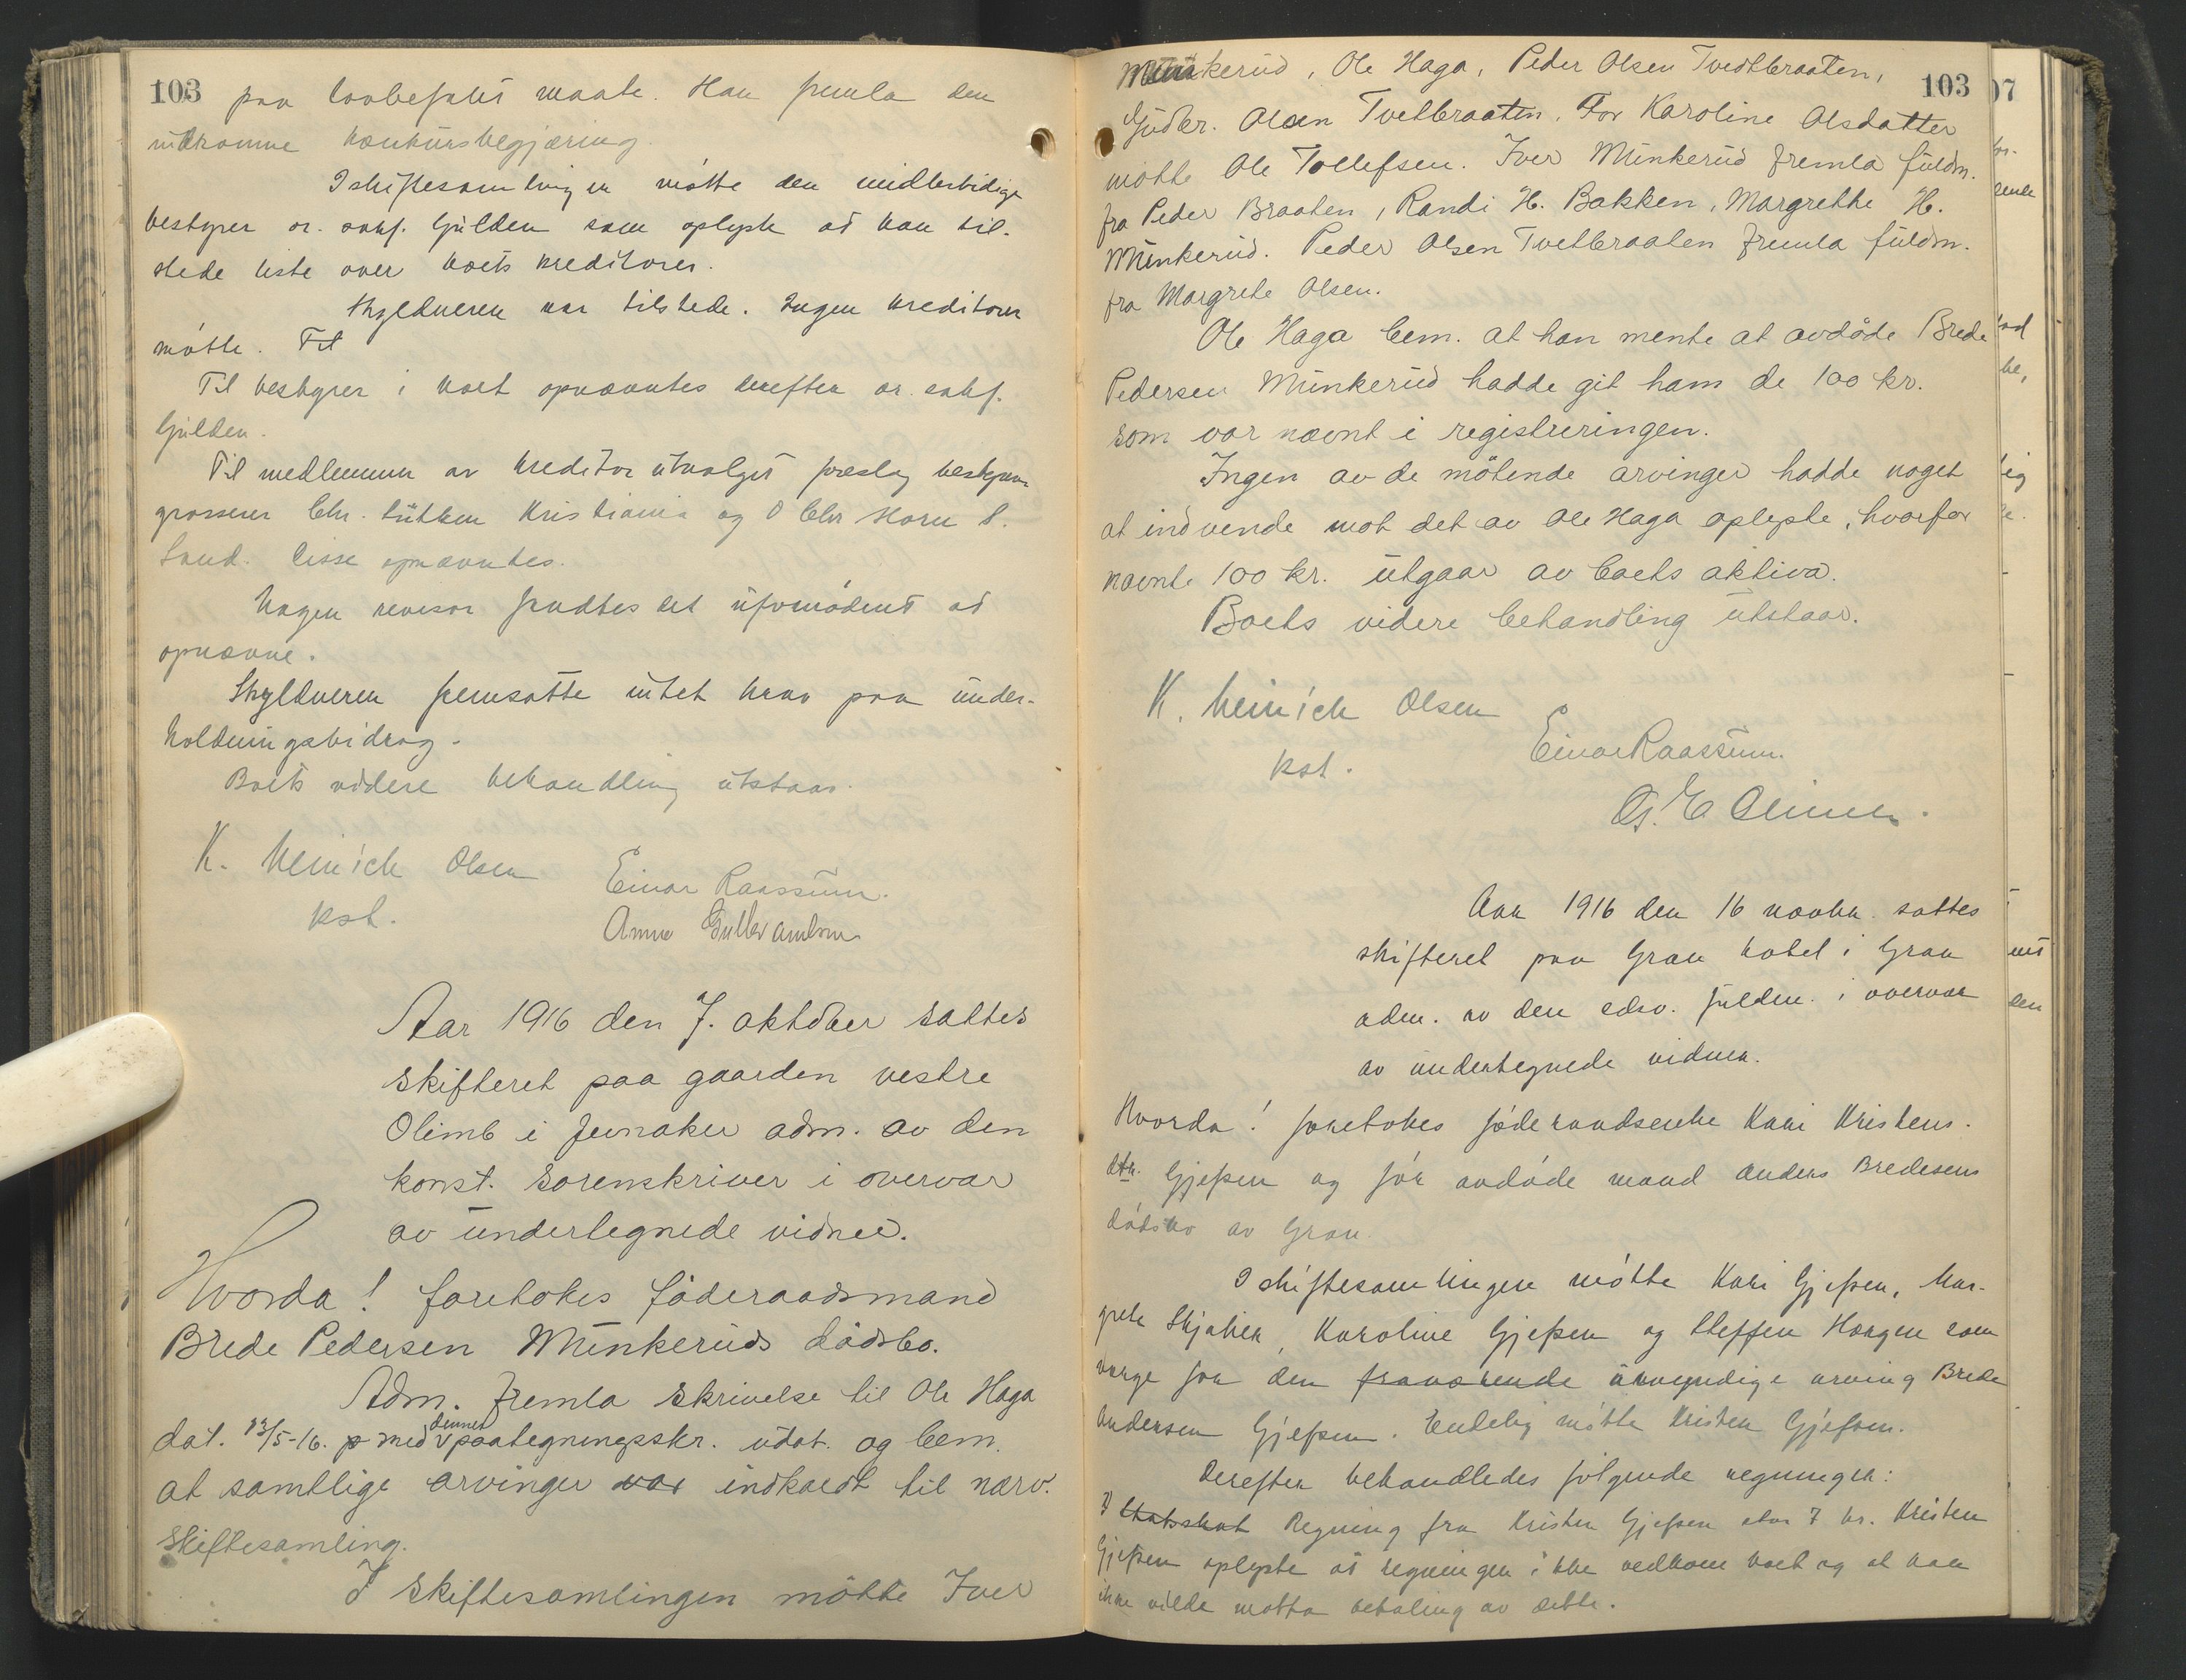 103
paa lovbefalt maate. Han fremla den
indkomne konkursbegjæring.
I skiftesamlingen møtte den midlertidige
bestyrer or. sakf. Gulden som oplyste at han til-
stede liste over boets kreditorer.
Skyldneren var tilstede. Ingen kreditorer
møtte. Til
Til bestyrer i boet opnævntes derefter or. sakf.
Gulden.
Til medlemmer av kreditorutvalget foreslog bestyreren
grosserer Chr. Lütken Kristiania og O Chr Horn S.
Land. Disse opnævntes.
Nogen revisor fandtes det ufornødent at
opnævne.
Skyldneren fremsatte intet krav paa under-
holdningsbidrag.
Boets videre behandling utstaar.
K. Heinrich Olsen
kst.
Einar Raassum.
Anne Gulbrandsen
Aar 1916 den 7. oktober sattes
skifteret paa gaarden vestre
Olimb i Jevnaker adm. av den
konst. sorenskriver i overvær
av undertegnede vidner.
Hvorda! foretokes føderaadsmand
Brede Pedersen Munkeruds dødsbo.
Adm. fremla skrivelse til Ole Haga
dat. 13/5-16. p med dennes paategningsskr. udat. og bem.
at samtlige arvinger var indkaldt til nærv.
skiftesamling.
I skiftesamlingen møtte Iver
103
Munkerud, Ole Haga, Peder Olsen Tvedtbraaten,
Gudbr. Olsen Tvetbraaten. For Karoline Olsdatter
møtte Ole Tollefsen. Iver Munkerud fremla fuldm.
fra Peder Braaten, Randi H. Bakken, Margrethe H.
Munkerud. Peder Olsen Tvetbraaten fremla fuldm.
fra Margrete Olsen.
Ole Haga bem. at han mente at avdøde Brede
Pedersen Munkerud hadde git ham de 100 kr.
som var nævnt i registreringen.
Ingen av de møtende arvinger hadde noget
at indvende mot det av Ole Haga oplyste, hvorfor
nævnte 100 kr. utgaar av boets aktiva.
Boets videre behandling utstaar.
K. Heinrich Olsen
kst.
Einar Raassum.
Aar 1916 den 16 novbr. sattes
skifteret paa Gran hotel i Gran
adm. av den edsv. fuldm. i overvær
av undertegnede vidner.
Hvorda! foretokes føderaadsenke Kari Kristens-
dtr. Gjefsen og før avdøde mand Anders Bredesens
dødsbo av Gran.
I skiftesamlingen møtte Kari Gjefsen, Mar-
grete Skjaker, Karoline Gjefsen og Steffen Haagen som
verge for den fraværende umyndige arving Brede
Andersen Gjefsen. Endelig møtte Kristen Gjefsen.
Derefter behandledes følgende regninger:
Statsskat Regning fra Kristen Gjefsen stor 7 kr. Kristen
Gjefsen oplyste at regningen ikke vedkom boet og at han
ikke vilde motta betaling av dette.